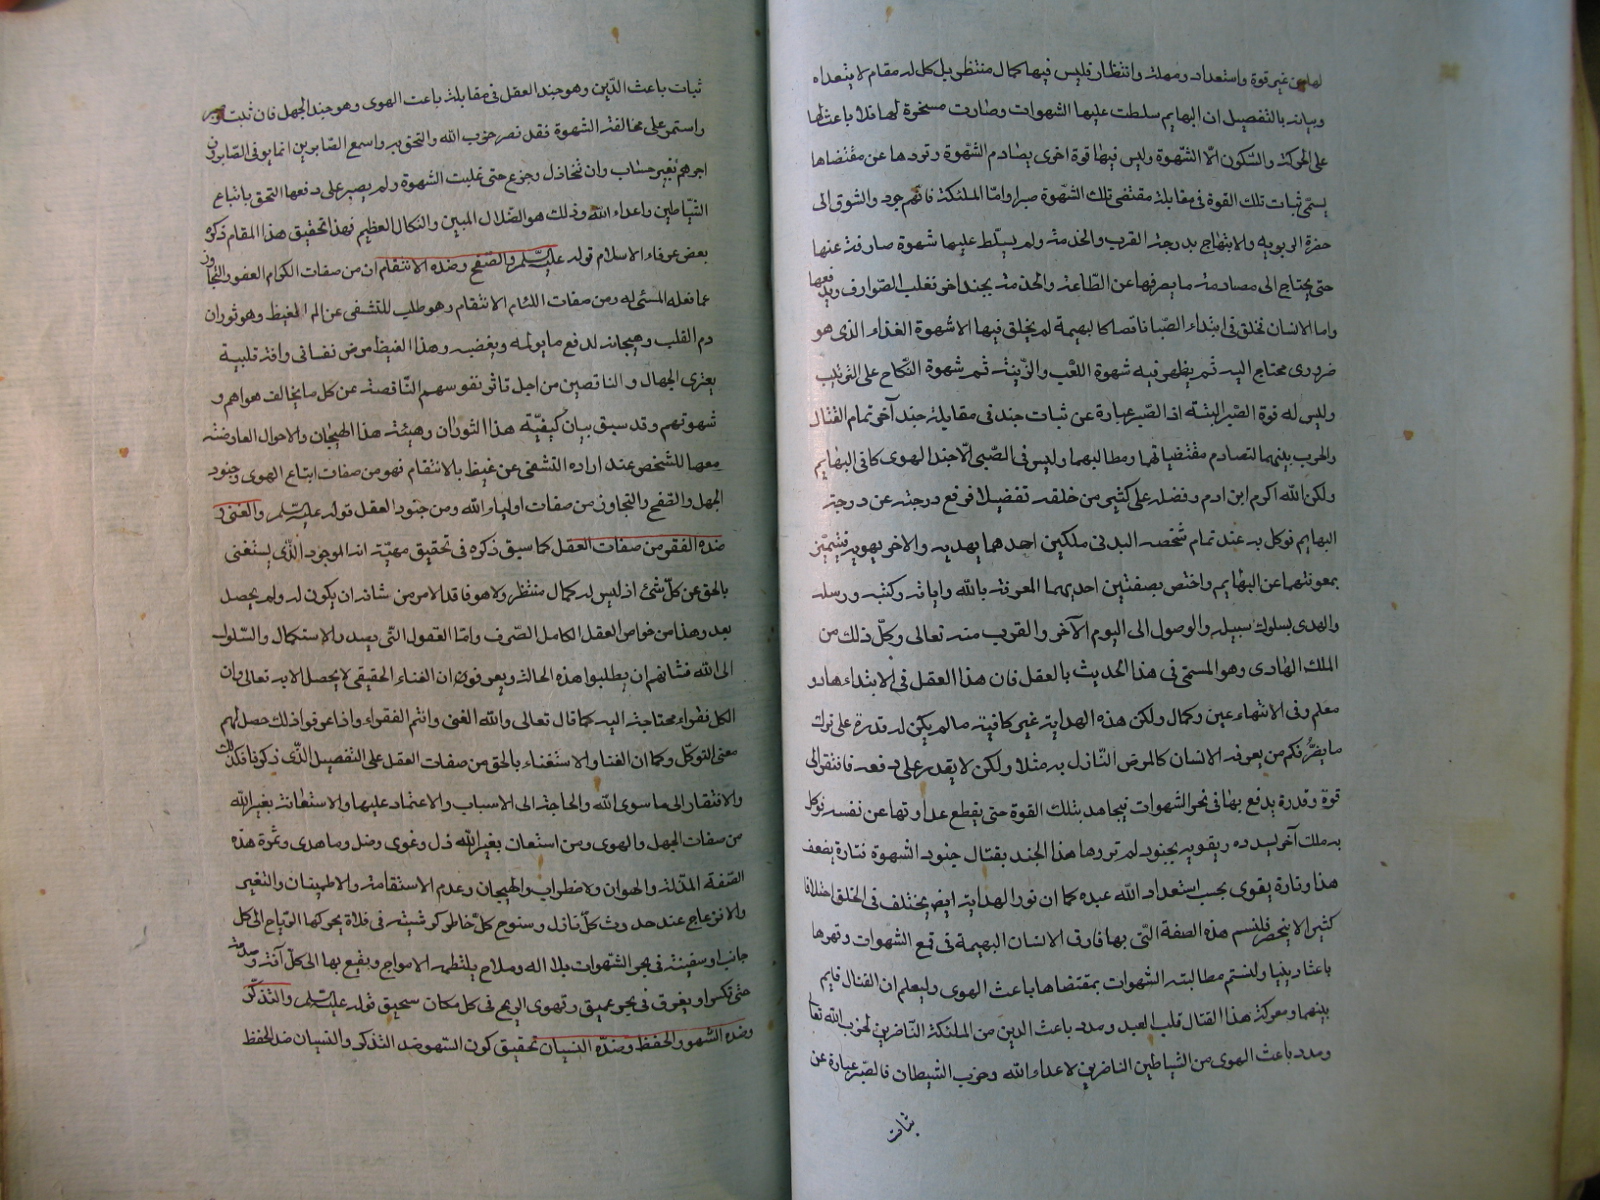 لها من غير قوة واستعداد ومهلة وانتظار فليس فيها كمال منتظر بل كل له مقام لا يتعداه
وبيانه بالتفصيل ان البهايم سلطت عليها الشهوات وصارت مسخرة لها فلا باعث لها
على الحركة والسكون الّا الشّهوة وليس فيها قوة اخرى يصادم الشهوة وتردها عن مقتضاها
يسمّى ثبات تلك القوة فى مقابلة مقتضى تلك الشّهوة صبرا وامّا الملئكة فانهم جرد والشوق الى
حضرة الربوبيه والابتهاج بدرجة القرب والخدمة ولم يسلّط عليها شهوة صارفة عنها
حتى يحتاج الى مصادمة ما يصرفها عن الطّاعة والخدمة بجند اخر تغلب الصّوارف ويدفعها
واما الانسان تخلق فى ابتداء الصّبا ناقصا كالبهيمة لم يخلق فيها الا شهوة الغذاء الذى هو
ضرورى محتاج اليه ثم يظهر فيه شهوة اللّعب والزّينة ثم شهوة النّكاح على الترتيب
وليس له قوة الصّبر البتّة اذ الصّبر عبارة عن ثبات جند فى مقابلة جند آخر تمام القتال
والحرب بينهما لتصادم مقتضياتهما ومطالبهما وليس فى الصّبى الّا جند الهوى كما فى البهايم
ولكن الله اكرم ابن ادم وفضله على كثير من خلقه تفضيلا فرفع درجته عن درجة
البهايم فوكل به عند تمام شخصه البدنى ملكين احدهما يهديه والاخر يقويه فيتميّز
بمعونتهما عن البهايم واختص بصفتين احديهما المعرفة بالله واياته وكتبه ورسله
والهدى بسلوك سبيله والوصول الى اليوم الآخر والقرب منه تعالى وكلّ ذلك من
الملك الهادى وهو المسمّى فى هذا الحديث بالعقل فان هذا العقل فى الابتداء هاد و
معلم وفى الانتهاء عين وكمال ولكن هذه الهداية غير كافية مالم يكن له قدرة على ترك
ما يضرّ فكم من يعرفه الانسان كالمرض النّازل به مثلا ولكن لا يقدر على دفعه فافتقر الى
قوة وقدرة يدفع بها فى نحر الشهوات فيجاهد بتلك القوة حتى يقطع عداوتها عن نفسه فوكل
به ملك آخر ليسدده ويقويه بجنود لم تروها هذا الجند بقتال جنود الشهوة فتارة يضعف
هذا وتارة يقوى بحسب استعداد الله عبده كما ان نور الهداية ايض يختلف فى الخلق اختلافا
كثيرا لا ينحصر فلنسم هذه الصفة التى بها فارق الانسان البهيمة فى قمع الشهوات وقهرها
باعثا دينيا ولنسم مطالبته الشهوات بمقتضاها باعث الهوى وليعلم ان القتال قايم
بينهما ومعركة هذا القتال قلب العبد ومدد باعث الدين من الملئكة النّاصرين لحزب الله تعا
ومدد باعث الهوى من الشياطين الناصرين لاعداء الله وحزب الشيطان فالصّبر عبارة عن
ثبات
ثبات باعث الدّين وهو جند العقل فى مقابلة باعث الهوى وهو جند الجهل فان ثبت
واستمر على مخالفة الشهوة فقد نصر حزب الله والتحق به واسمع الصّابرين انما يوفى الصّابرون
اجرهم بغير حساب وان تخاذل وجزع حتى غلبت الشهوة ولم يصبر على دفعها التحق باتباع
الشّياطين واعداء الله وذلك هو الضّلال المبين والنكال العظيم فهذا تحقيق هذا المقام ذكره
بعض عرفاء الاسلام قوله عليه السّلم والصّفح وضده الانتقام ان من صفات الكرام العفو والتجاوز
عما فعله المسئى له ومن صفات اللئام الانتقام وهو طلب للتشفى عن الم الغيظ وهو ثوران
دم القلب وهيجانه لدفع ما يولمه وبغضه وهذا الغيظ مرض نفسانى وافة قلبية
يعترى الجهال والناقصين من اجل تاثر نفوسهم النّاقصة عن كل ما يخالف هواهم و
شهوتهم وقد سبق بيان كيفيّة هذا الثوران وهيئة هذا الهيجان والاحوال العارضة
معها للشخص عند اراده التشفى عن غيظ بالانتقام فهو من صفات اتباع الهوى وجنود
الجهل والصّفح والتجاوز من صفات اولياء الله ومن جنود العقل قوله عليه السّلم والغنى و
ضده الفقر من صفات العقل كما سبق ذكره فى تحقيق مهيّة انه الموجود الّذى يستغنى
بالحق عن كلّ شئ اذ ليس له كمال منتظر ولا هو فاقد لامر من شانه ان يكون له ولم يحصل
بعد وهذا من خواص العقل الكامل الصّرف وامّا العقول التّى بصدد الاستكمال والسّلوك
الى الله فشانهم ان يطلبوا هذه الحالة ويعرفون ان الغناء الحقيقى لا يحصل الا به تعالى وان
الكل فقراء محتاجة اليه كما قال تعالى والله الغنى وانتم الفقراء واذا عرفوا ذلك حصل لهم
معنى التوكّل وكما ان الغنا والاستغناء بالحق من صفات العقل على التفصيل الذّى ذكرنا فكذلك
والافتقار الى ما سوى الله والحاجة الى الاسباب والاعتماد عليها والاستعانة بغير الله
من صفات الجهل والهوى ومن استعان بغير الله ذل وغوى وضل وما هدى وثمرة هذه
الصّفة المذلة والهوان والاضطراب والهيجان وعدم الاستقامة والاطمينان والتغير
والانزعاج عند حدوث كلّ نازل وسنوح كلّ خاطر كريشة فى فلاة يحركها الرّياح الى كل
جانب او سفينة فى بحر الشّهوات بلا اله وملاح يلتطمه الامواج ويقع بها الى كلّ آفة وصدمة
حتى تكسر او يغرق فى بحر عميق وتهوى الريح فى كل مكان سحيق قوله عليه السّلم والتّذكّر
وضده السّهو والحفظ وضدّه النسيان تحقيق كون السّهو ضد التذكر والنّسيان ضد الحفظ